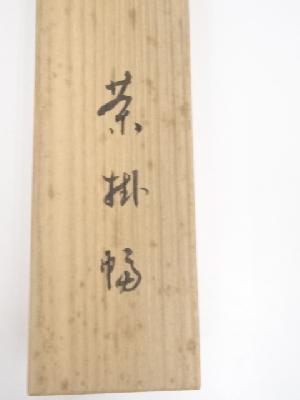 茶掛幅